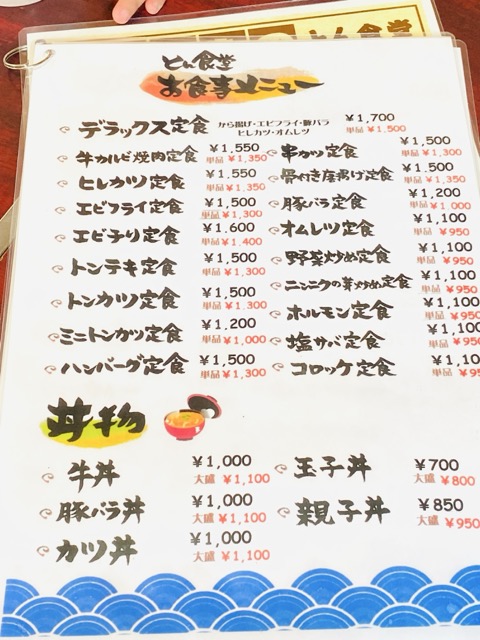 とん食堂
とん食堂
お食事メニュー
デラックス定食 から揚げ・エビフライ・豚バラ ヒレカツ・オムレツ ¥1,700 単品 ¥1,500
牛カルビ焼肉定食 ¥1,550 単品 ¥1,350
ヒレカツ定食 ¥1,550 単品 ¥1,350
エビフライ定食 ¥1,500 単品 ¥1,300
エビチリ定食 ¥1,600 単品 ¥1,400
トンテキ定食 ¥1,500 単品 ¥1,300
トンカツ定食 ¥1,500 単品 ¥1,300
ミニトンカツ定食 ¥1,200 単品 ¥1,000
ハンバーグ定食 ¥1,500 単品 ¥1,300
串カツ定食 ¥1,500 単品 ¥1,300
骨付き唐揚げ定食 ¥1,500 単品 ¥1,350
豚バラ定食 ¥1,200 単品 ¥1,000
オムレツ定食 ¥1,100 単品 ¥950
野菜炒め定食 ¥1,100 単品 ¥950
ニンニクの芽炒め定食 ¥1,100 単品 ¥950
ホルモン定食 ¥1,100 単品 ¥950
塩サバ定食 ¥1,100 単品 ¥950
コロッケ定食 ¥1,10 単品 ¥95
丼物
牛丼 ¥1,000 大盛 ¥1,100
豚バラ丼 ¥1,000 大盛 ¥1,100
カツ丼 ¥1,000 大盛 ¥1,100
玉子丼 ¥700 大盛 ¥800
親子丼 ¥850 大盛 ¥950